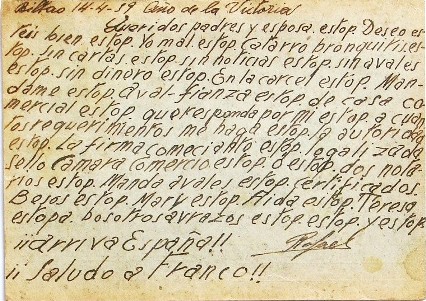 Bilbao 14-4-39 Año de la Victoria
Queridos padres y esposa. estop. Deseo es-
teis bien. estop. Yo mal. estop. Catarro bronquitis. es-
top. sin cartas. estop. sin noticias estop. sin avales
estop. sin dinero estop. En la carcel estop. Man-
dame estop. aval-fianza estop. de casa co-
mercial estop. que responda por mi estop. a cuan
tos requerimientos me haga estop. la autoridad
estop. La firma comerciante estop. legalizada
sello Camara Comercio estop. o estop. dos nota
rios estop. Manda avales. estop. certificados.
Besos estop. Mary estop. Aida estop. Teresa
estopa. bosotros avrazos estop. estop. y estop.
¡¡arriva España!! Rafael
¡¡Saludo a Franco!!